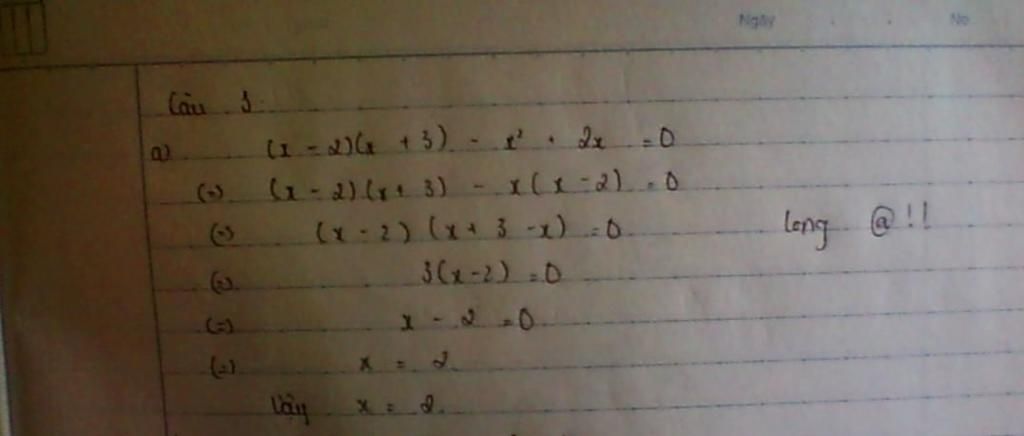 Ngày . . No
Câu 3:
a) (x - 2)(x + 3) - x² + 2x = 0
(=) (x - 2)(x + 3) - x(x - 2) = 0
(=) (x - 2)(x + 3 - x) = 0
long @!!
(=) 3(x - 2) = 0
(=) x - 2 = 0
(=) x = 2.
Vậy x = 2.